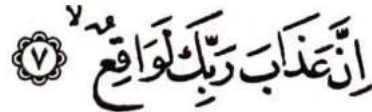 اِنَّ عَذَابَ رَبِّكَ لَوَاقِعٌ ۙ ﴿٧﴾